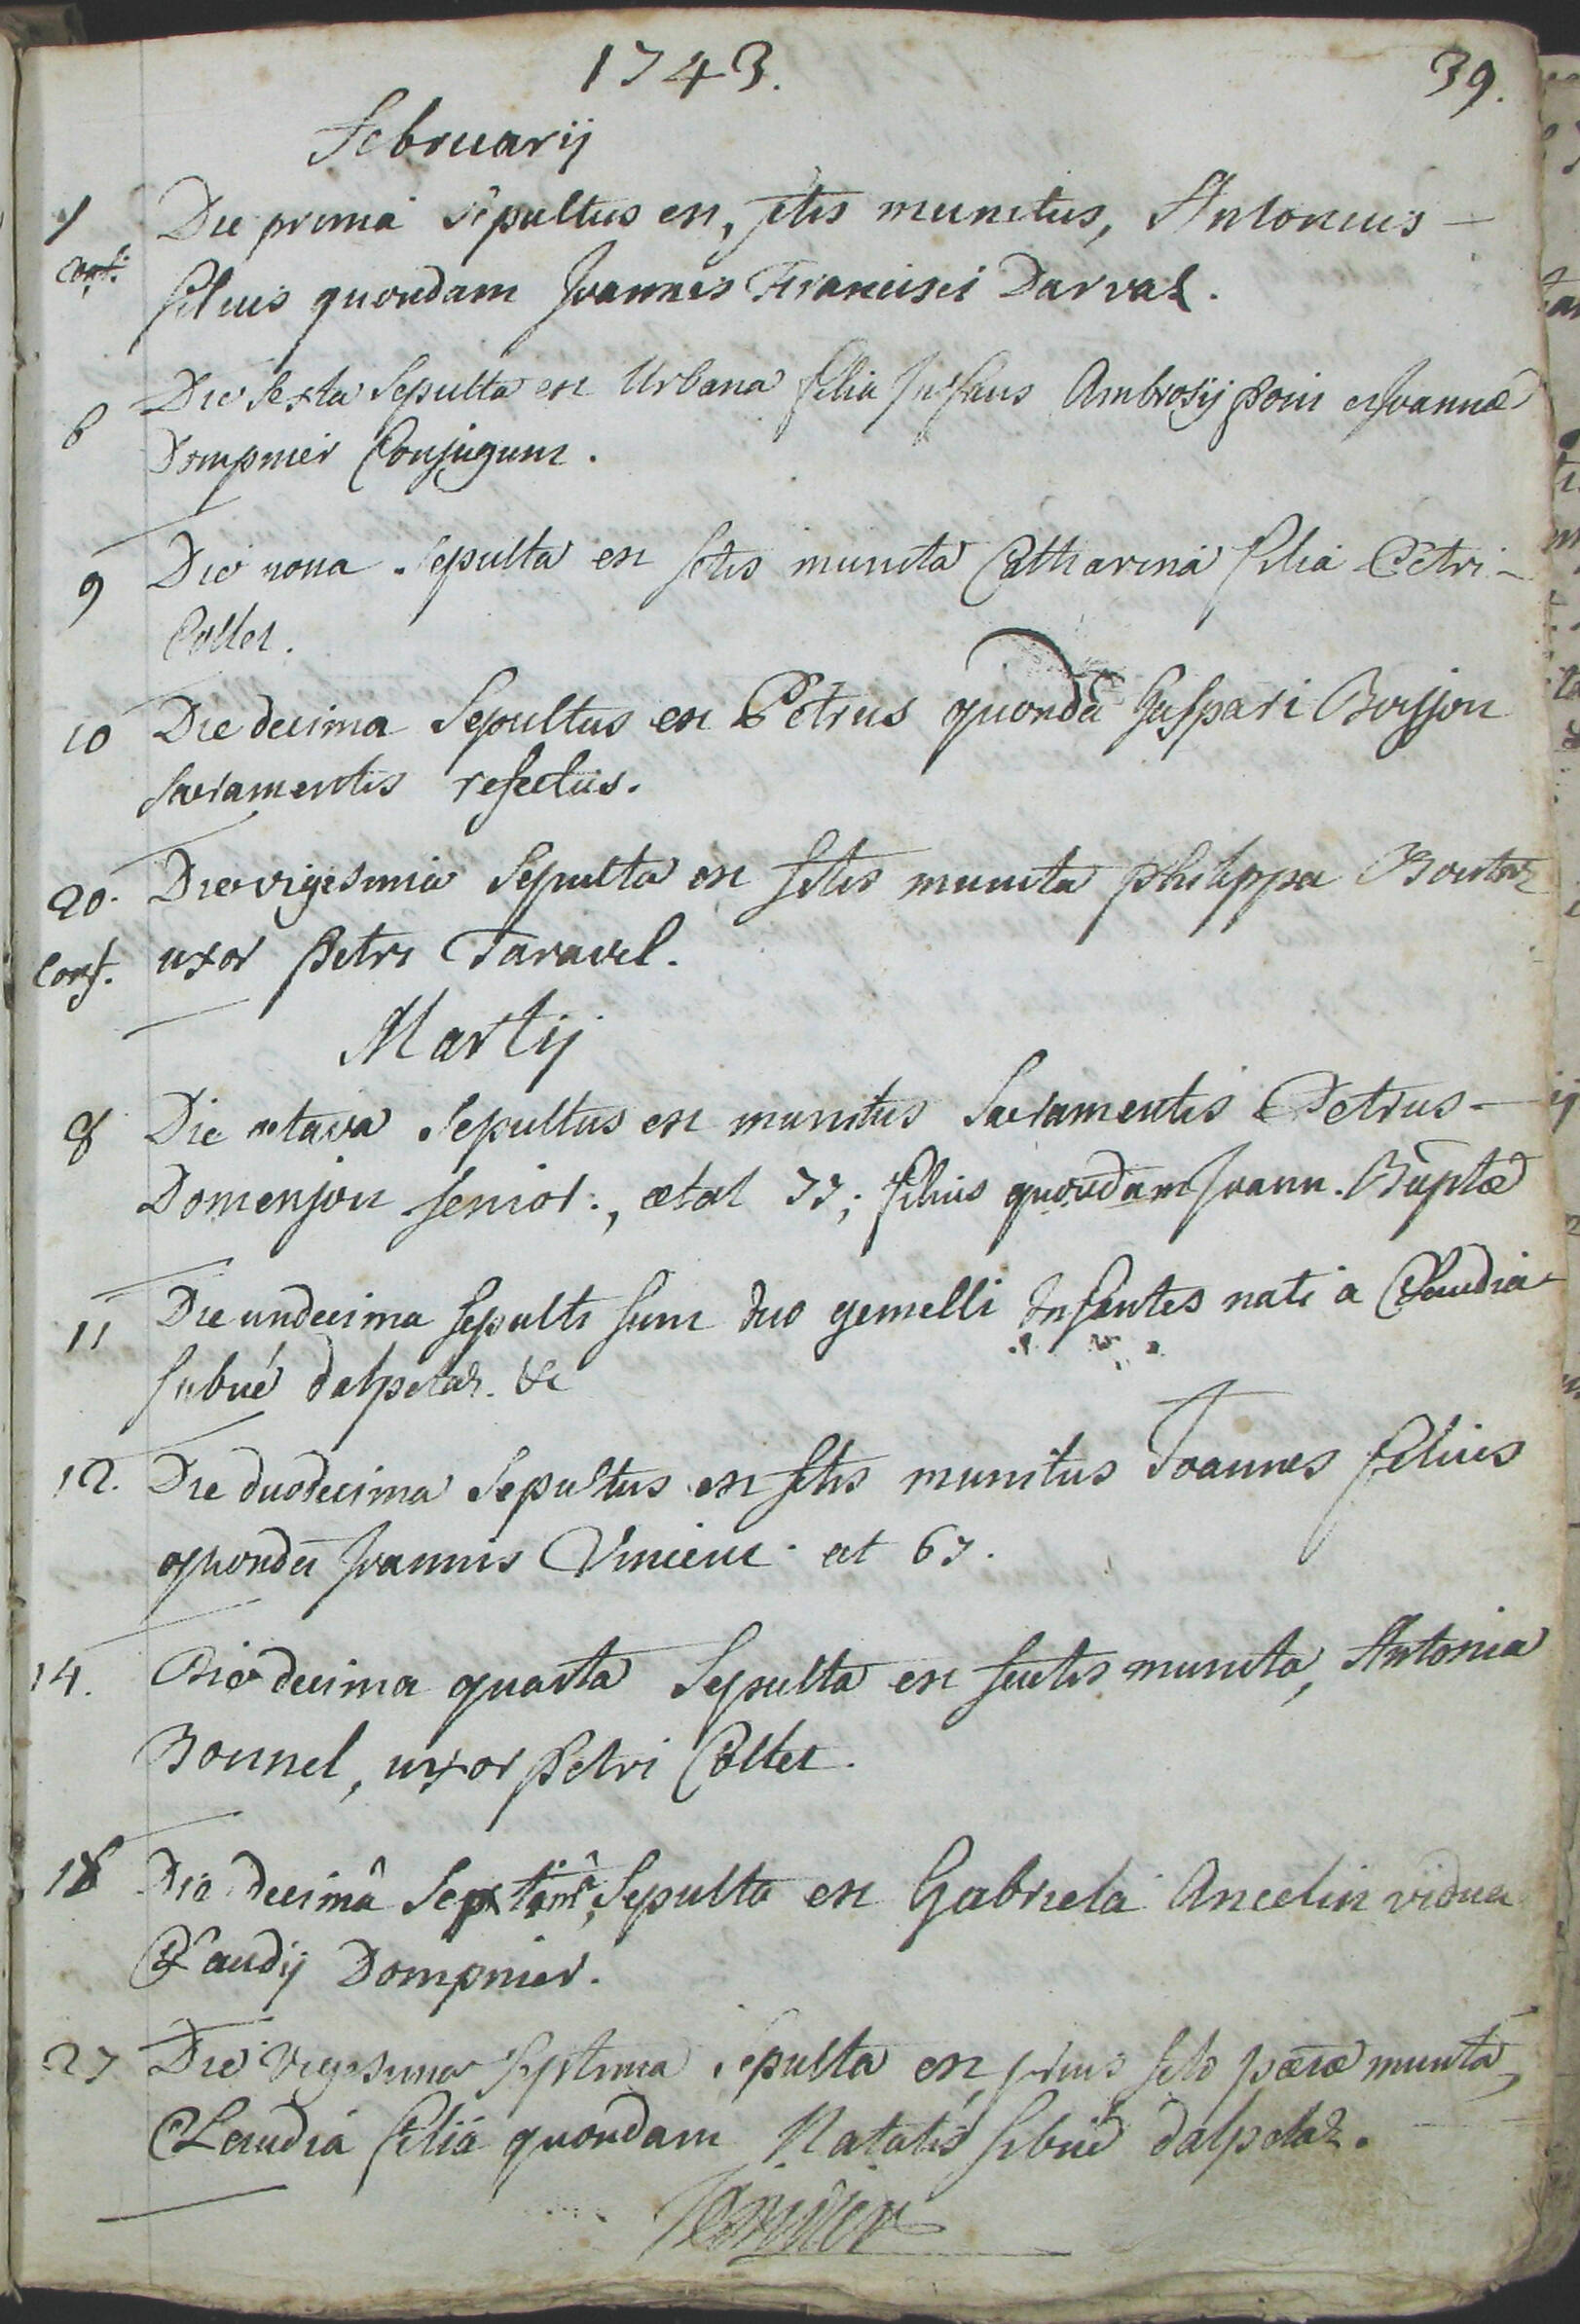 1743.
39.
Februarij
1 Die prima sepultus est, sctis munitus, Antonius -
conf. filius quondam Joannis Francisci Darval.
6 Die sexta sepulta est Urbana filia infans Ambrosij et Joannæ
Dompnier Conjugum.
9 Die nona sepulta est sctis munita Catharina filia Petri -
Collet.
10 Die decima Sepultus est Petrus quondā Gaspari Boisson
sacramentis refectus.
20. Die vigesima Sepulta est sctis munita philippa
conf. uxor petri Taravel.
Martij
8 Die octava Sepultus est munitus Sacramentis Petrus -
Domenjon senior., ætat 77; filius quondam Joann. Baptæ
11 Die undecima sepulti sunt duo gemelli Infantes nati a Claudia
dalpetaz. &c
12. Die duodecima Sepultus est sctis munitus Joannes filius
quondā Joannis Vincent. æt 67.
14. Die decima quarta Sepulta est sctis munita, Antonia
Bonnel, uxor petri Collet.
18 Die decimâ Septimâ, Sepulta est Gabriela Ancelin vidua
Claudij Dompnier.
27 Die vigesima septima sepulta est, prius munita,
Claudia filia quondam Natalis dalpetaz.